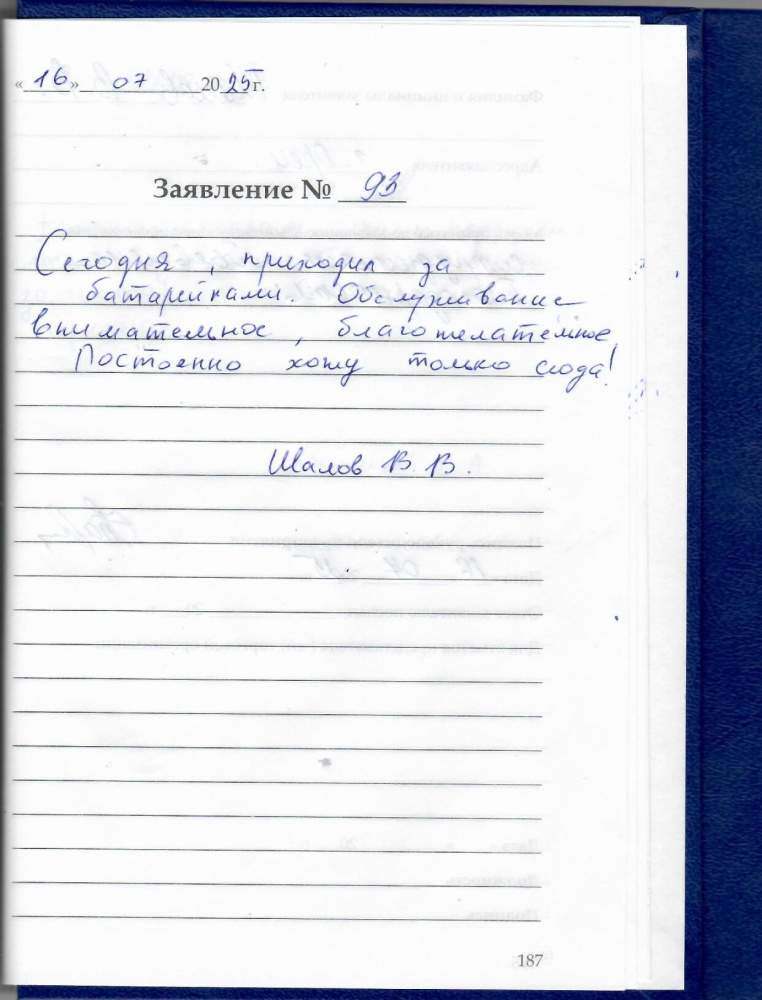 «16» 07 2025 г.
Заявление № 93
Сегодня, приходил за
батарейками. Обслуживание
внимательное, благожелательное,
Постоянно хожу только сюда!
Шалов В. В.
187